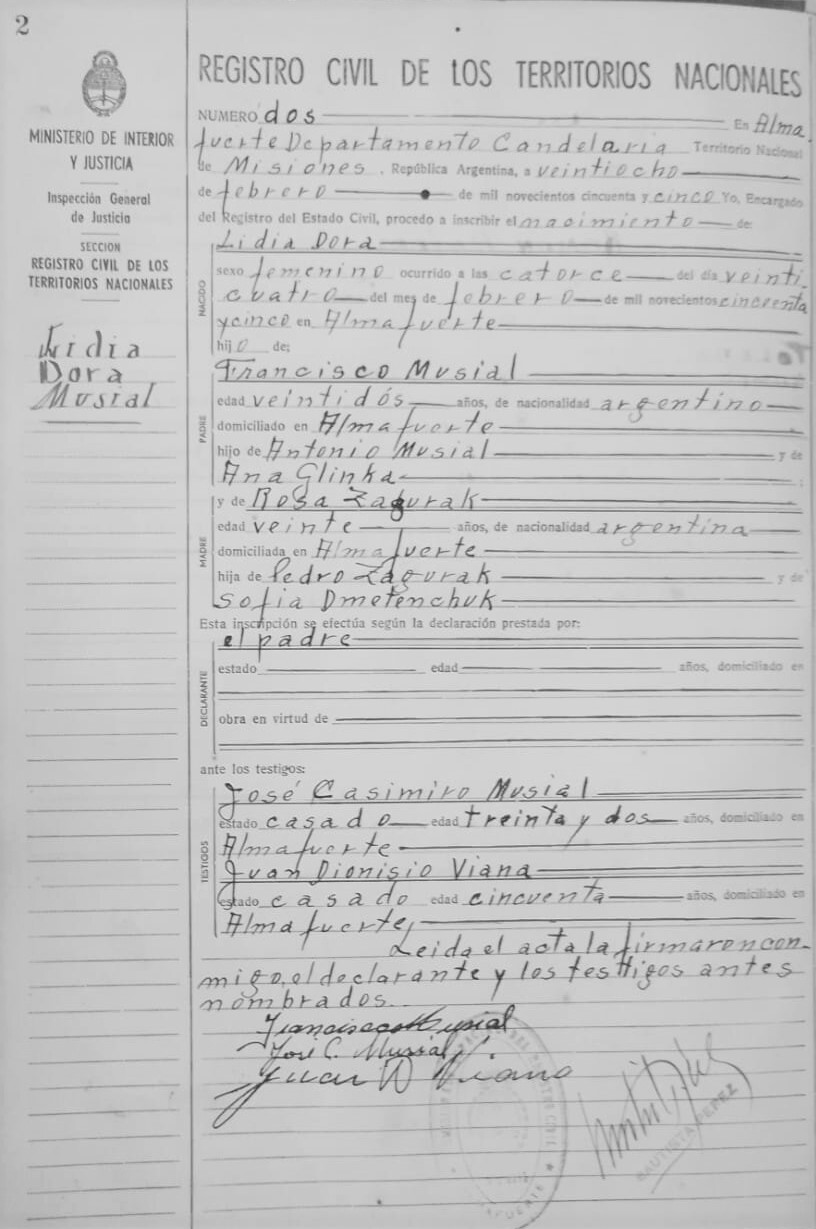 2
MINISTERIO DE INTERIOR
Y JUSTICIA
Inspección General
de Justicia
SECCION
REGISTRO CIVIL DE LOS
TERRITORIOS NACIONALES
Lidia
Dora
Musial
REGISTRO CIVIL DE LOS TERRITORIOS NACIONALES
NUMERO dos En Alma
fuerte Departamento Candelaria Territorio Nacional
de Misiones, República Argentina, a veintiocho
de febrero de mil novecientos cincuenta y cinco Yo, Encargado
del Registro del Estado Civil, procedo a inscribir el nacimiento de:
Lidia Dora
NACIDO
sexo femenino ocurrido a las catorce del día veinti
cuatro del mes de febrero de mil novecientos cincuenta
y cinco en Almafuerte
hijo de;
Francisco Musial
PADRE
edad veintidós años, de nacionalidad argentino
domiciliado en Almafuerte
hijo de Antonio Musial y de
Ana Glinka ;
y de Rosa Zagurak
MADRE
edad veinte años, de nacionalidad argentina
domiciliada en Almafuerte
hija de Pedro Zagurak y de
Sofia Dmetenchuk
Esta inscripción se efectúa según la declaración prestada por:
el padre
DECLARANTE
estado edad años, domiciliado en
obra en virtud de
ante los testigos:
José Casimiro Musial
TESTIGOS
estado casado edad treinta y dos años, domiciliado en
Almafuerte
Juan Dionisio Viana
estado casado edad cincuenta años, domiciliado en
Almafuerte,
Leida el acta la firmaron con-
migo, el declarante y los testigos antes
nombrados
Francisco Musial
José C. Musial
Juan D Viana
BAUTISTA PEREZ